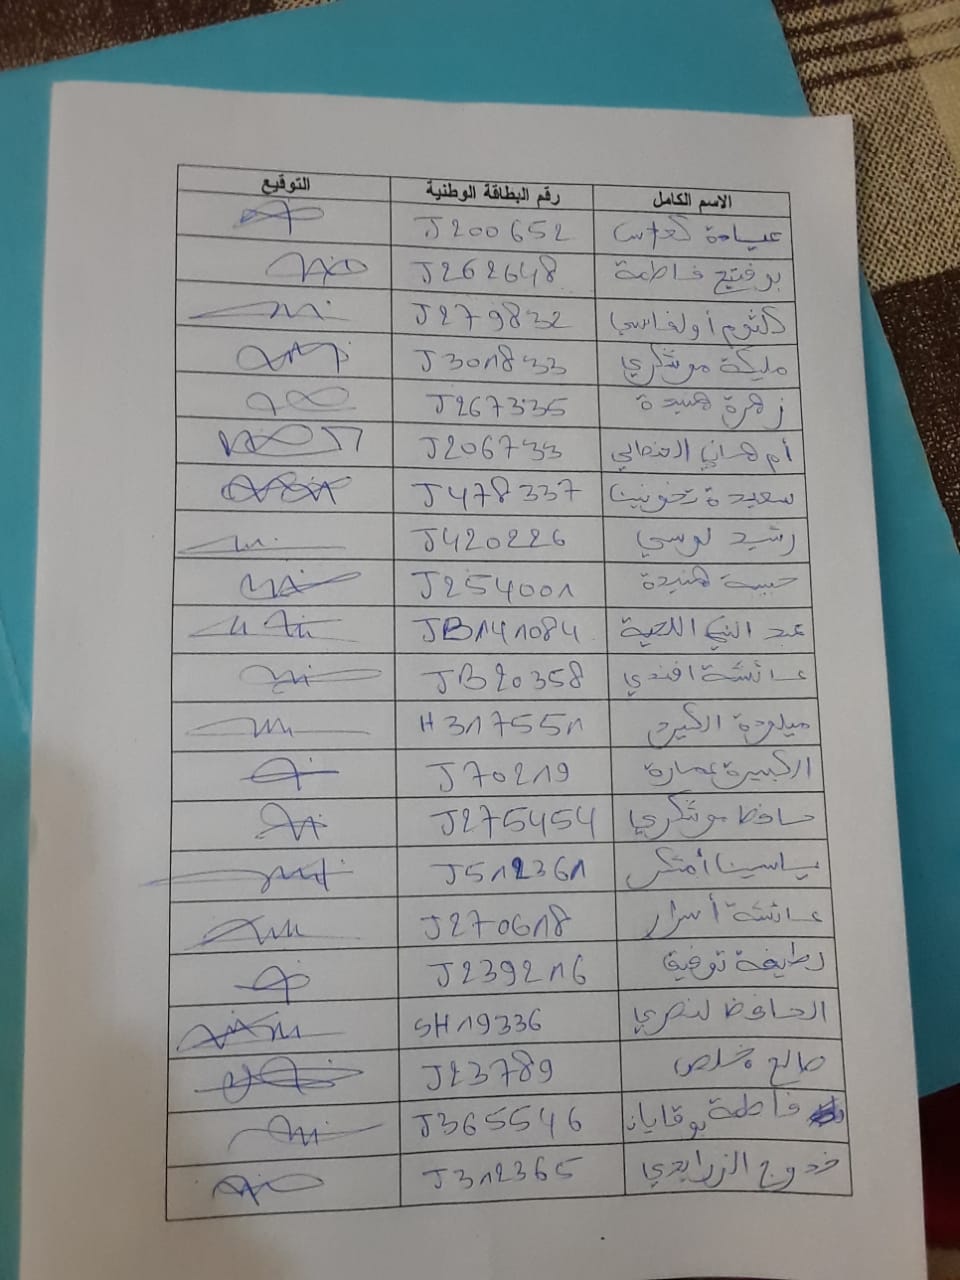 الاسم الكامل رقم البطاقة الوطنية التوقيع
عيادة J200652
بوفتيح فاطمة J262648
كلثوم أولفاسي J279832
مليكة موشكري J301833
زهرة هنيدة J267335
أم هاني الفضالي J206733
سعيدة J478337
رشيد لوسي J420226
حبيبة هنيدة J254001
عبد النبي اللعبة JB141084
عائشة افندي JB20358
ميلودة الكيرد H317551
الكبيرة عمارة J70219
حافظ موشكري J275454
ياسين أمتكر J512361
عائشة أسرار J270618
لطيفة توفيق J239216
الحافظ لنصري SH19336
صالح مخلص J23789
فاطمة بوقايا J365546
خدوج الزرايدي J312365